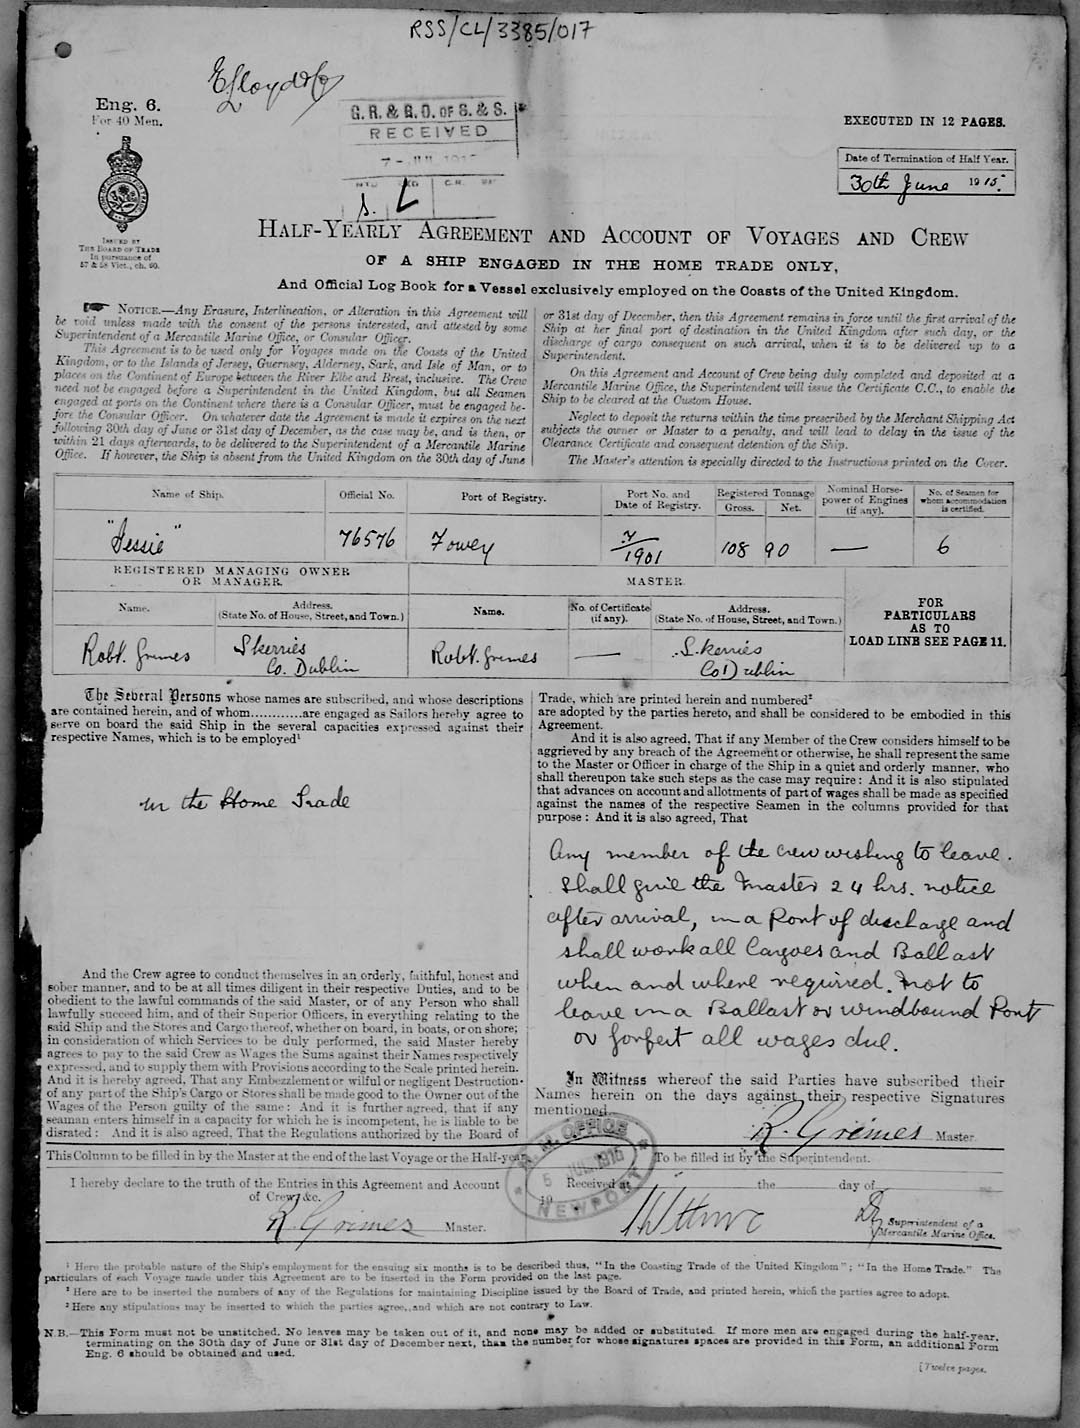 RSS/CL/3385/017
Eng. 6.
For 40 Men.
G.R. & G.O. OF S. & S.
RECEIVED
7 - JUL 191
EXECUTED IN 12 PAGES.
Date of Termination of Half Year.
30th June 1915.
ISSUED BY
THE BOARD OF TRADE
In pursuance of
57 & 58 Vict., ch. 60.
HALF-YEARLY AGREEMENT AND ACCOUNT OF VOYAGES AND CREW
OF A SHIP ENGAGED IN THE HOME TRADE ONLY,
And Official Log Book for a Vessel exclusively employed on the Coasts of the United Kingdom.
NOTICE.—Any Erasure, Interlineation, or Alteration in this Agreement will
be void unless made with the consent of the persons interested, and attested by some
Superintendent of a Mercantile Marine Office, or Consular Officer.
This Agreement is to be used only for Voyages made on the Coasts of the United
Kingdom, or to the Islands of Jersey, Guernsey, Alderney, Sark, and Isle of Man, or to
places on the Continent of Europe between the River Elbe and Brest, inclusive. The Crew
need not be engaged before a Superintendent in the United Kingdom, but all Seamen
engaged at ports on the Continent where there is a Consular Officer, must be engaged be-
fore the Consular Officer. On whatever date the Agreement is made it expires on the next
following 30th day of June or 31st day of December, as the case may be, and is then, or
within 21 days afterwards, to be delivered to the Superintendent of a Mercantile Marine
Office. If however, the Ship is absent from the United Kingdom on the 30th day of June
or 31st day of December, then this Agreement remains in force until the first arrival of the
Ship at her final port of destination in the United Kingdom after such day, or the
discharge of cargo consequent on such arrival, when it is to be delivered up to a
Superintendent.
On this Agreement and Account of Crew being duly completed and deposited at a
Mercantile Marine Office, the Superintendent will issue the Certificate C.C., to enable the
Ship to be cleared at the Custom House.
Neglect to deposit the returns within the time prescribed by the Merchant Shipping Act
subjects the owner or Master to a penalty, and will lead to delay in the issue of the
Clearance Certificate and consequent detention of the Ship.
The Master's attention is specially directed to the Instructions printed on the Cover.
Name of Ship. Official No. Port of Registry. Port No. and Date of Registry. Registered Tonnage Gross. Net. Nominal Horse-power of Engines (if any). No. of Seamen for whom accommodation is certified.
"Jessie" 76576 Fowey 7/1901 108 90 — 6
REGISTERED MANAGING OWNER
OR MANAGER.
MASTER.
Name. Address. (State No. of House, Street, and Town.) Name. No. of Certificate (if any). Address. (State No. of House, Street, and Town.)
FOR
PARTICULARS
AS TO
LOAD LINE SEE PAGE 11.
Robt. Grimes Skerries Co. Dublin Robt. Grimes — Skerries Co Dublin
The Several Persons whose names are subscribed, and whose descriptions
are contained herein, and of whom............are engaged as Sailors hereby agree to
serve on board the said Ship in the several capacities expressed against their
respective Names, which is to be employed¹
in the Home Trade
And the Crew agree to conduct themselves in an orderly, faithful, honest and
sober manner, and to be at all times diligent in their respective Duties, and to be
obedient to the lawful commands of the said Master, or of any Person who shall
lawfully succeed him, and of their Superior Officers, in everything relating to the
said Ship and the Stores and Cargo thereof, whether on board, in boats, or on shore;
in consideration of which Services to be duly performed, the said Master hereby
agrees to pay to the said Crew as Wages the Sums against their Names respectively
expressed, and to supply them with Provisions according to the Scale printed herein.
And it is hereby agreed, That any Embezzlement or wilful or negligent Destruction
of any part of the Ship's Cargo or Stores shall be made good to the Owner out of the
Wages of the Person guilty of the same: And it is further agreed, that if any
seaman enters himself in a capacity for which he is incompetent, he is liable to be
disrated: And it is also agreed, That the Regulations authorized by the Board of
Trade, which are printed herein and numbered²
are adopted by the parties hereto, and shall be considered to be embodied in this
Agreement.
And it is also agreed, That if any Member of the Crew considers himself to be
aggrieved by any breach of the Agreement or otherwise, he shall represent the same
to the Master or Officer in charge of the Ship in a quiet and orderly manner, who
shall thereupon take such steps as the case may require: And it is also stipulated
that advances on account and allotments of part of wages shall be made as specified
against the names of the respective Seamen in the columns provided for that
purpose: And it is also agreed, That
Any member of the crew wishing to leave.
shall give the master 24 hrs. notice
after arrival, in a Port of discharge and
shall work all Cargoes and Ballast
when and where required. not to
leave in a Ballast or windbound Port
or forfeit all wages due.
In Witness whereof the said Parties have subscribed their
Names herein on the days against their respective Signatures
mentioned.
R. Grimes Master.
This Column to be filled in by the Master at the end of the last Voyage or the Half-year.
I hereby declare to the truth of the Entries in this Agreement and Account
of Crew, &c.
R. Grimes Master.
To be filled in by the Superintendent.
Received at the day of
19
M. M. OFFICE
5 JUL 1915
NEWPORT
Dy Superintendent of a
Mercantile Marine Office.
¹ Here the probable nature of the Ship's employment for the ensuing six months is to be described thus, "In the Coasting Trade of the United Kingdom"; "In the Home Trade." The
particulars of each Voyage made under this Agreement are to be inserted in the Form provided on the last page.
² Here are to be inserted the numbers of any of the Regulations for maintaining Discipline issued by the Board of Trade, and printed herein, which the parties agree to adopt.
³ Here any stipulations may be inserted to which the parties agree, and which are not contrary to Law.
N.B.—This Form must not be unstitched. No leaves may be taken out of it, and none may be added or substituted. If more men are engaged during the half-year,
terminating on the 30th day of June or 31st day of December next, than the number for whose signatures spaces are provided in this Form, an additional Form
Eng. 6 should be obtained and used.
[Twelve pages.